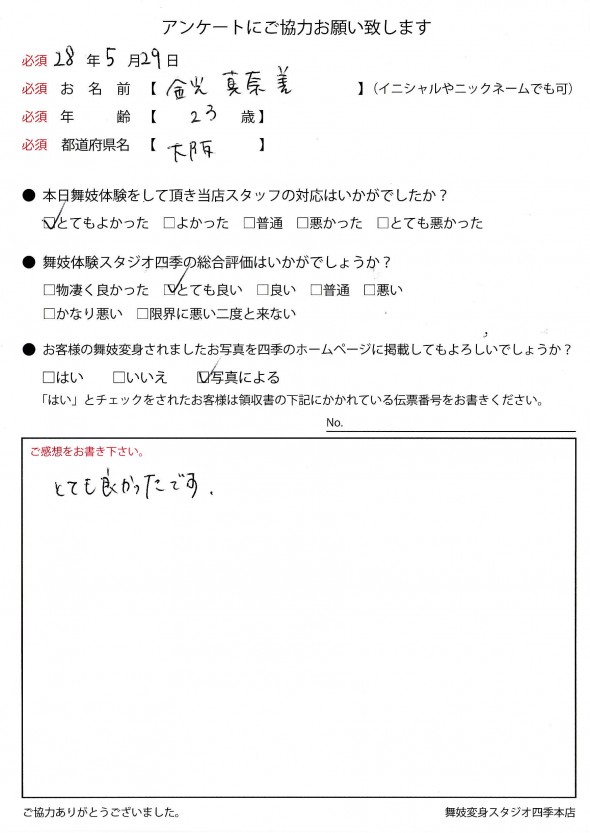 アンケートにご協力お願い致します
必須 28 年 5 月 29 日
必須 お 名 前 【 金光 真奈美 】（イニシャルやニックネームでも可）
必須 年 齢 【 23 歳】
必須 都道府県名 【 大阪 】
● 本日舞妓体験をして頂き当店スタッフの対応はいかがでしたか？
☑とてもよかった □よかった □普通 □悪かった □とても悪かった
● 舞妓体験スタジオ四季の総合評価はいかがでしょうか？
□物凄く良かった ☑とても良い □良い □普通 □悪い
□かなり悪い □限界に悪い二度と来ない
● お客様の舞妓変身されましたお写真を四季のホームページに掲載してもよろしいでしょうか？
□はい □いいえ ☑写真による
「はい」とチェックをされたお客様は領収書の下記にかかれている伝票番号をお書きください。
No.
ご感想をお書き下さい。
とても良かったです.
ご協力ありがとうございました。 舞妓変身スタジオ四季本店